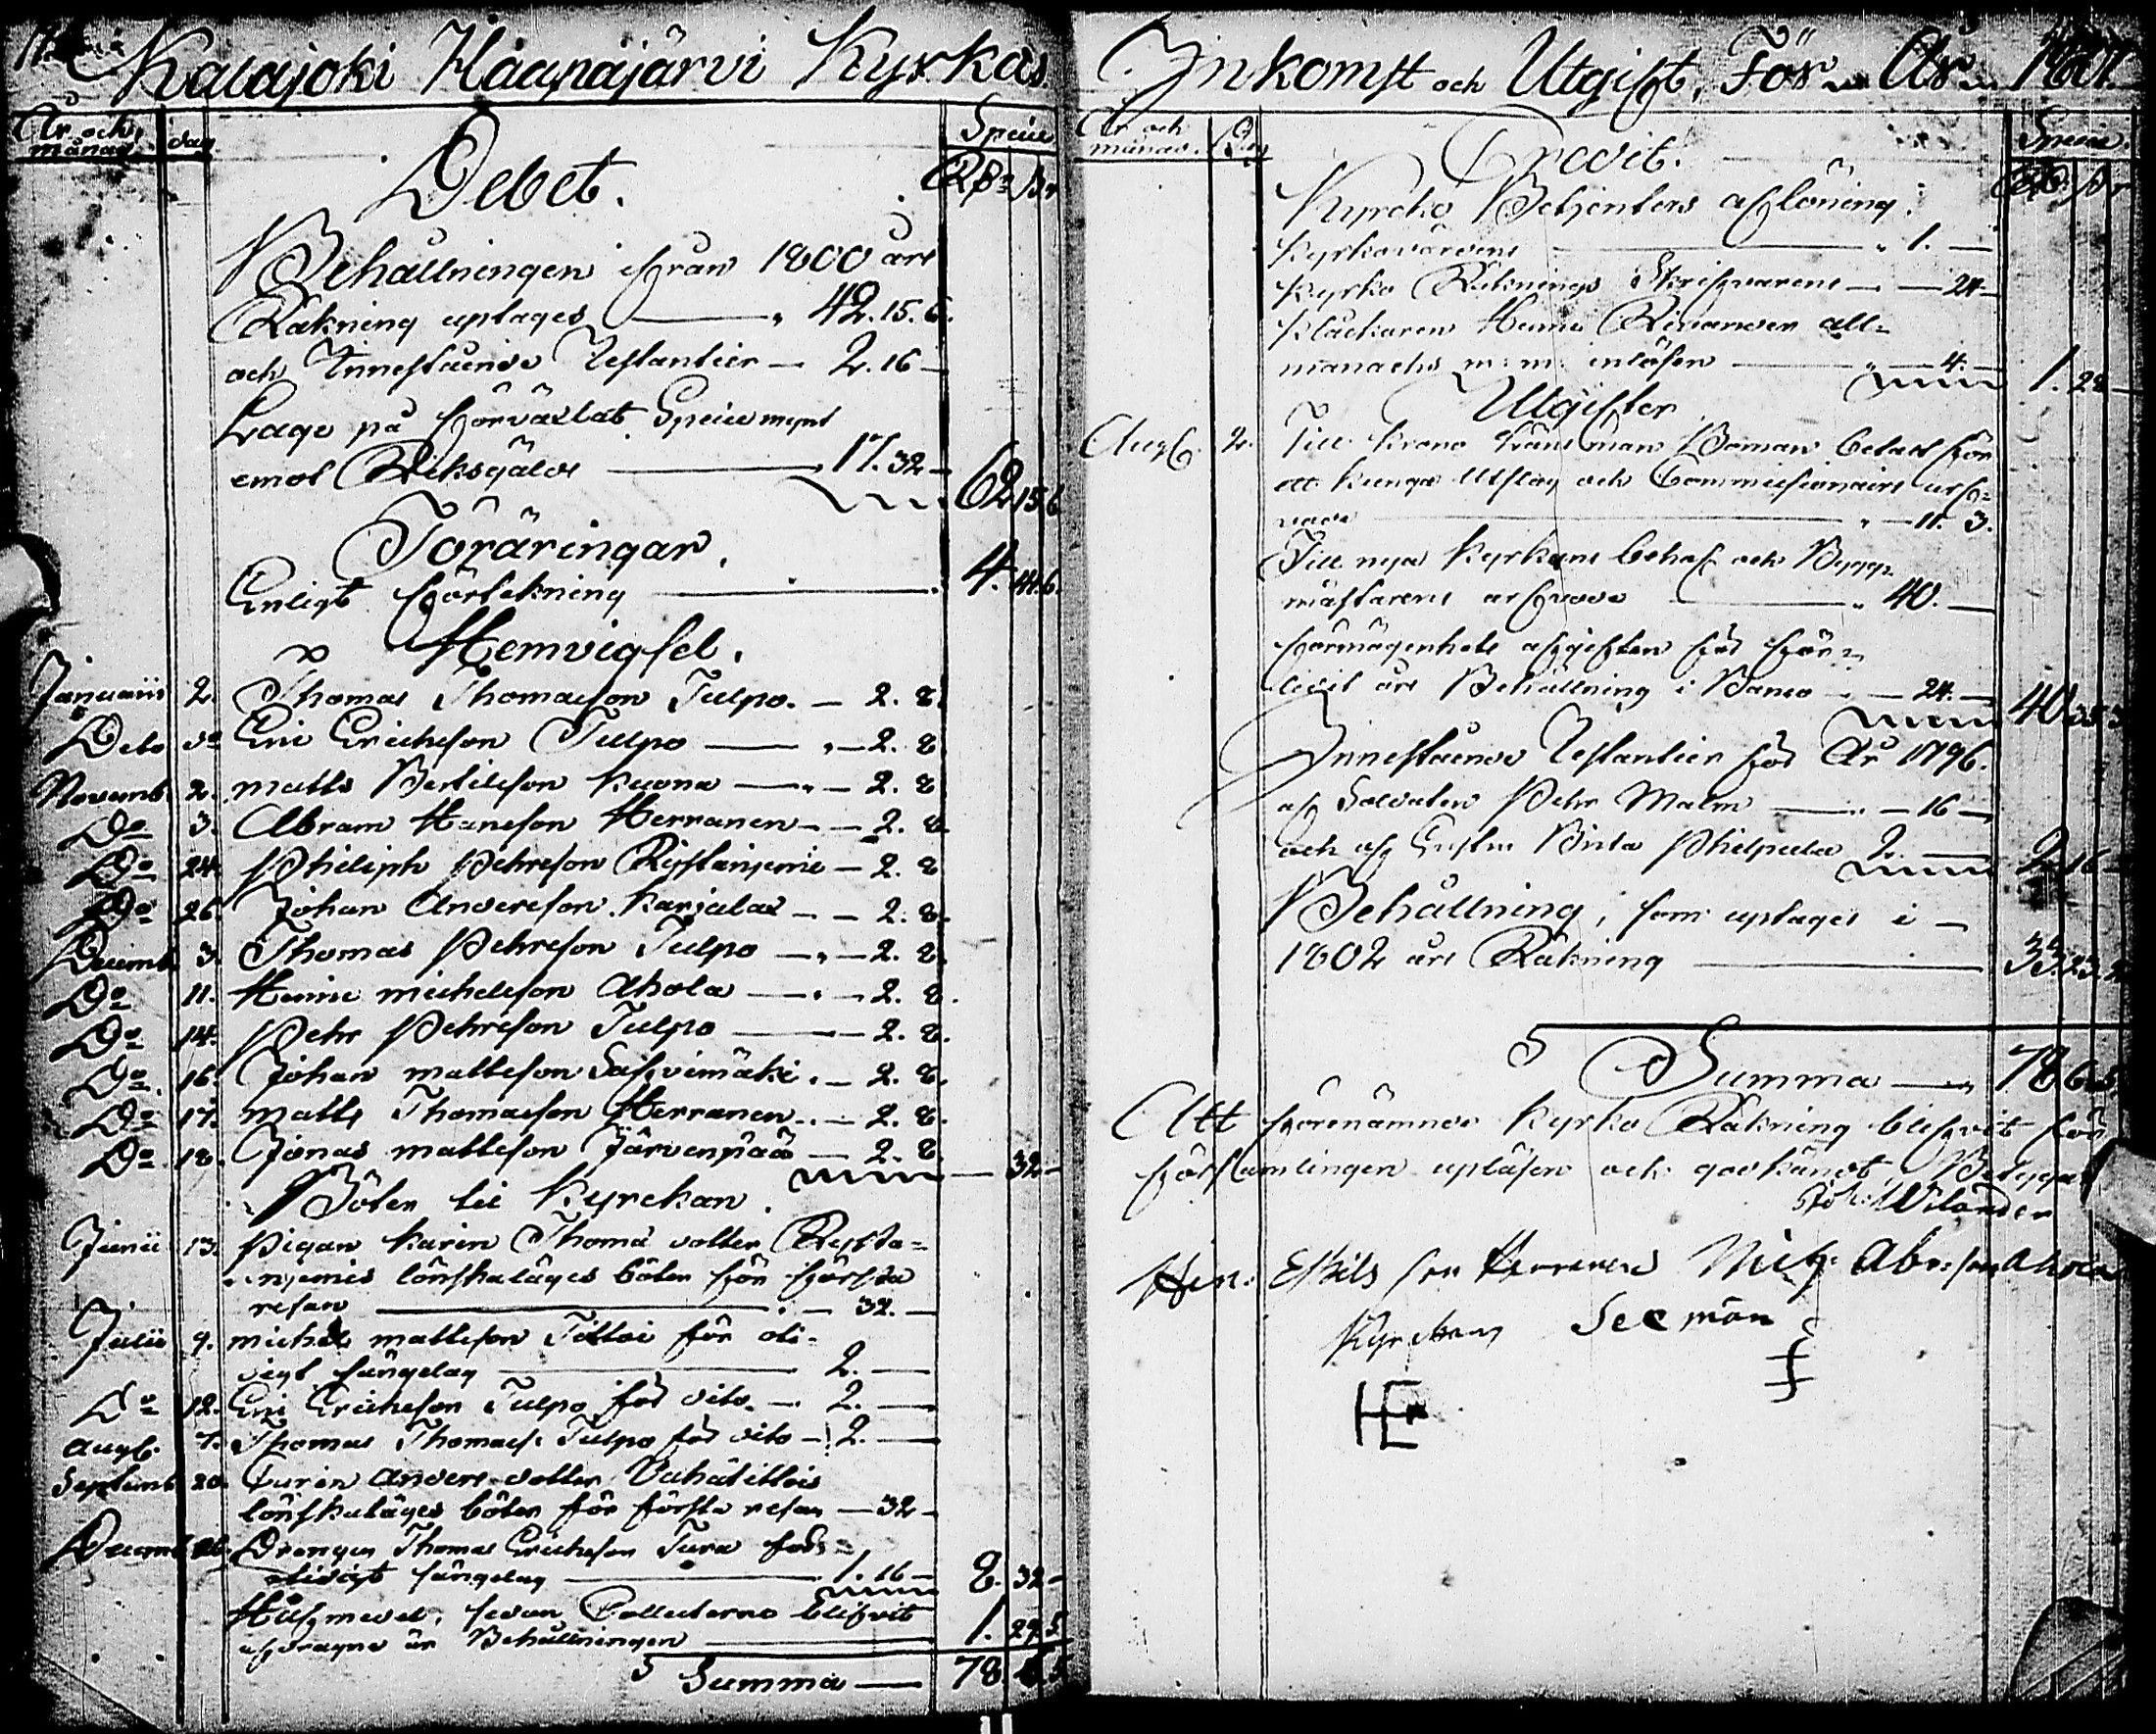 Kalajoki Haapajärvi Kyrkas
År och månad. dag Specie
Debet. Rdr ß r
Behållningen ifrån 1800 års
Räkning uptages 42. 15. 6.
och Innestående Restantier 2. 16
Lage på förväxlat Specie mynt
emot Riksgälds 17. 32 62 15 6
Föräringar.
Enligt förtekning 4. 44. 6.
Hemvigsel.
Januarii 2 Thomas Thomasson Tulpo. 2. 8.
Dito do Eric Erichsson Tulpo 2. 8
Novemb. 2. Matts Bertilsson Kuona 2. 8
Do 3. Abram Hansson Herranen 2. 8.
Do 24. Philiph Pehrsson Ristaniemi 2. 8
Do 26. Johan Andersson Karjalas 2. 8.
Decemb. 3. Thomas Pehrsson Tulpo 2. 8.
Do 11. Henric Michelsson Ahola 2. 8.
Do 14. Pehr Pehrsson Tulpo 2. 8.
Do 16. Johan Mattsson Safvimäki 2. 8.
Do 17. Matts Thomasson Herranen 2. 8.
Do 18. Jonas Mattsson Järvenpää 2. 8. 32
Böter til Kyrckan.
Junii 13. Pigan Karin Thomä dotter Rista=
niemis lönskaläges böter för första
resan 32.
Julii 9. Michel Mattsson Tiitloi för oti-
digt sängelag 2.
Do 12. Eric Erichsson Tulpo för dito 2.
Aug. 7. Thomas Thomass. Tulpo för dito 2.
Septemb. 20. Carin Anders dotter Vahätitlois
lönskaläges böter för första resan 32
Decemb. 26. Drengen Thomas Erichsson Tura för
otidigt sängelag 1. 16 8. 32
Håfmedel, sedan Collecterne blifvit
afdragne är Behållningen 1. 29. 5
Summa 78. 6. 5
Inkomst och Utgift, För År 1801.
År och månad. Dag Specie
Credit. Rdr ß r
Kyrcko Betjenters aflöning.
Kyrkovärdens 1.
Kyrko Räknings Skrifvarens 24
Klåckaren Henric Rimander all=
manachs m: m: inlösen 4. 1. 28
Utgifter
Aug. 2. Till Krono Länsman Boman betalt för
ett Kungs Utslag och Commissionairs arfv=
vode 11. 3.
Till nya Kyrkans behof och Bygg=
mästarens arfvode 40.
Förmögenhets afgiften för för=
ledit års Behållning i Banco 24. 40 35 3
Innestående Restantier för År 1796.
af Soldaten Pehr Malm 16
och af Gustav Pinta Philpula 2. 2 16
Behållning, som uptages i
1802 års Räkning 33. 23. 2
Summa 78 6 5
Att förenämnde Kyrko Räkning blifvit för
församlingen upläsen och godkändt, Betygar
Joh: Wilander
Hin: Eskils son Herranen Mich: Abr: son Ahola
Kyrckans Sex män
HE